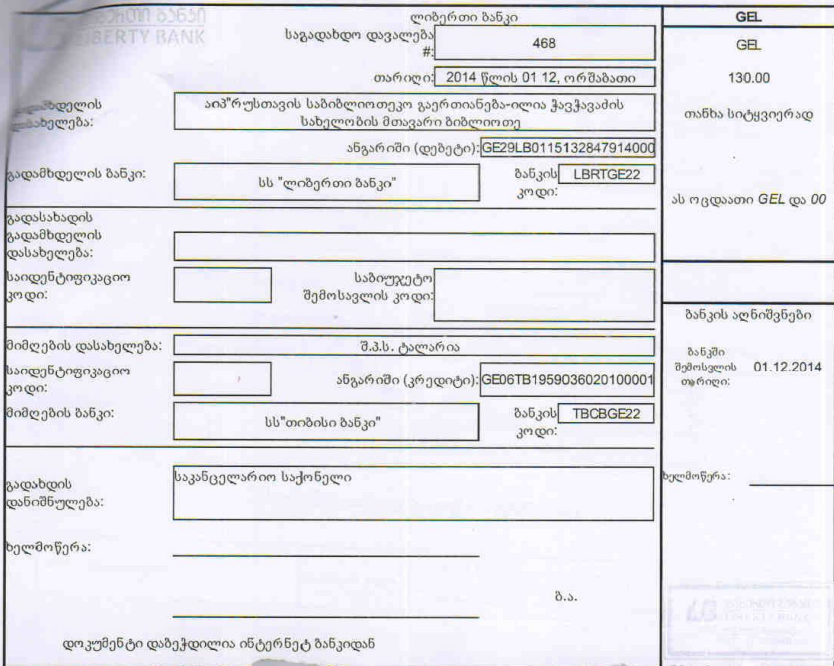 ლიბერთი ბანკი
LIBERTY BANK
ლიბერთი ბანკი
საგადახდო დავალება
#:
468
თარიღი: 2014 წლის 01 12, ორშაბათი
გადამხდელის
დასახელება:
აიპ"რუსთავის საბიბლიოთეკო გაერთიანება-ილია ჭავჭავაძის
სახელობის მთავარი ბიბლიოთე
ანგარიში (დებეტი): GE29LB0115132847914000
გადამხდელის ბანკი:
სს "ლიბერთი ბანკი"
ბანკის
კოდი:
LBRTGE22
გადასახადის
გადამხდელის
დასახელება:
საიდენტიფიკაციო
კოდი:
საბიუჯეტო
შემოსავლის კოდი:
მიმღების დასახელება:
შ.პ.ს. ტალარია
საიდენტიფიკაციო
კოდი:
ანგარიში (კრედიტი): GE06TB1959036020100001
მიმღების ბანკი:
სს"თიბისი ბანკი"
ბანკის
კოდი:
TBCBGE22
გადახდის
დანიშნულება:
საკანცელარიო საქონელი
ხელმოწერა:
ბ.ა.
დოკუმენტი დაბეჭდილია ინტერნეტ ბანკიდან
GEL
GEL
130.00
თანხა სიტყვიერად
ას ოცდაათი GEL და 00
ბანკის აღნიშვნები
ბანკში
შემოსვლის
თარიღი:
01.12.2014
ხელმოწერა:
LIBERTY BANK